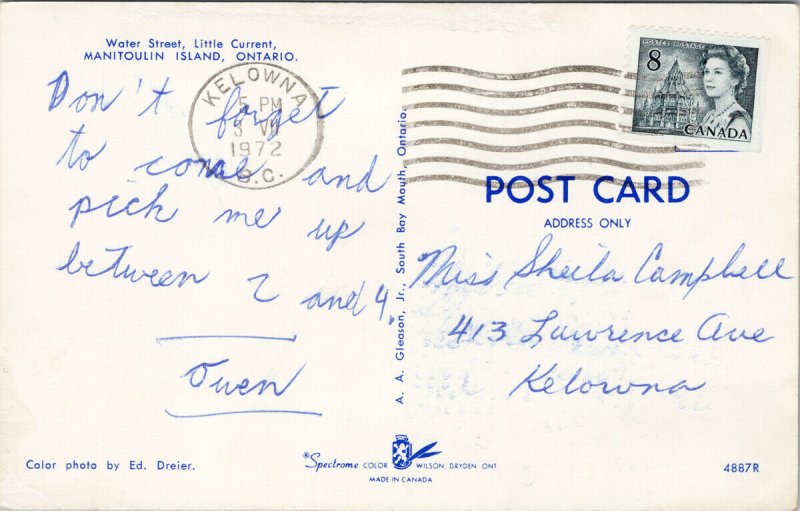 Water Street, Little Current,
MANITOULIN ISLAND, ONTARIO.
Don't forget
to come and
pick me up
between 2 and 4.
Owen
KELOWNA
5 PM
3 VII
1972
B.C.
8
POSTES POSTAGE
CANADA
POST CARD
ADDRESS ONLY
Miss Sheila Campbell
413 Lawrence Ave
Kelowna
A. A. Gleason, Jr., South Bay Mouth, Ontario
Color photo by Ed. Dreier.
Spectrome COLOR WILSON, DRYDEN, ONT
MADE IN CANADA
4887R